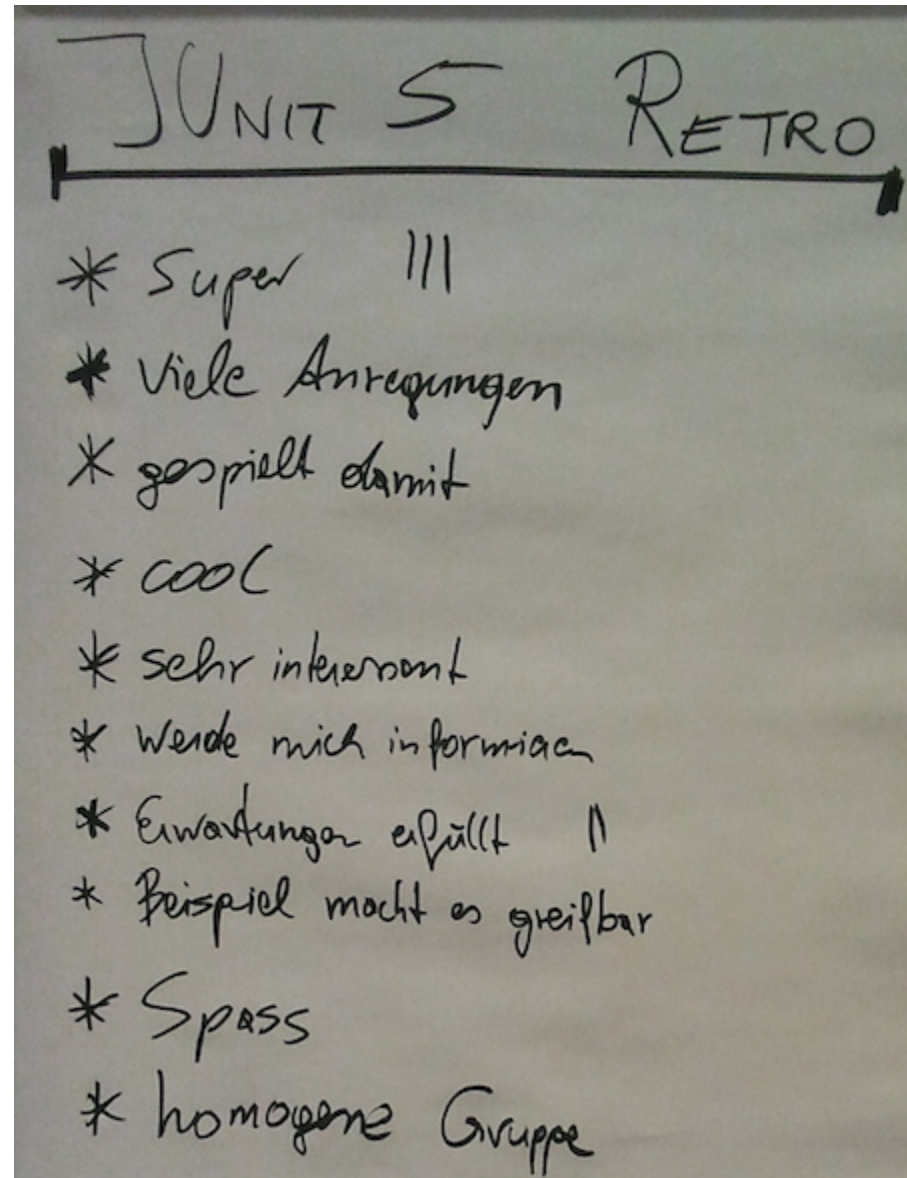 JUNIT 5 RETRO
* Super |||
* Viele Anregungen
* gespielt damit
* cool
* sehr interessant
* Werde mich informieren
* Erwartungen erfüllt ||
* Beispiel macht es greifbar
* Spass
* homogene Gruppe